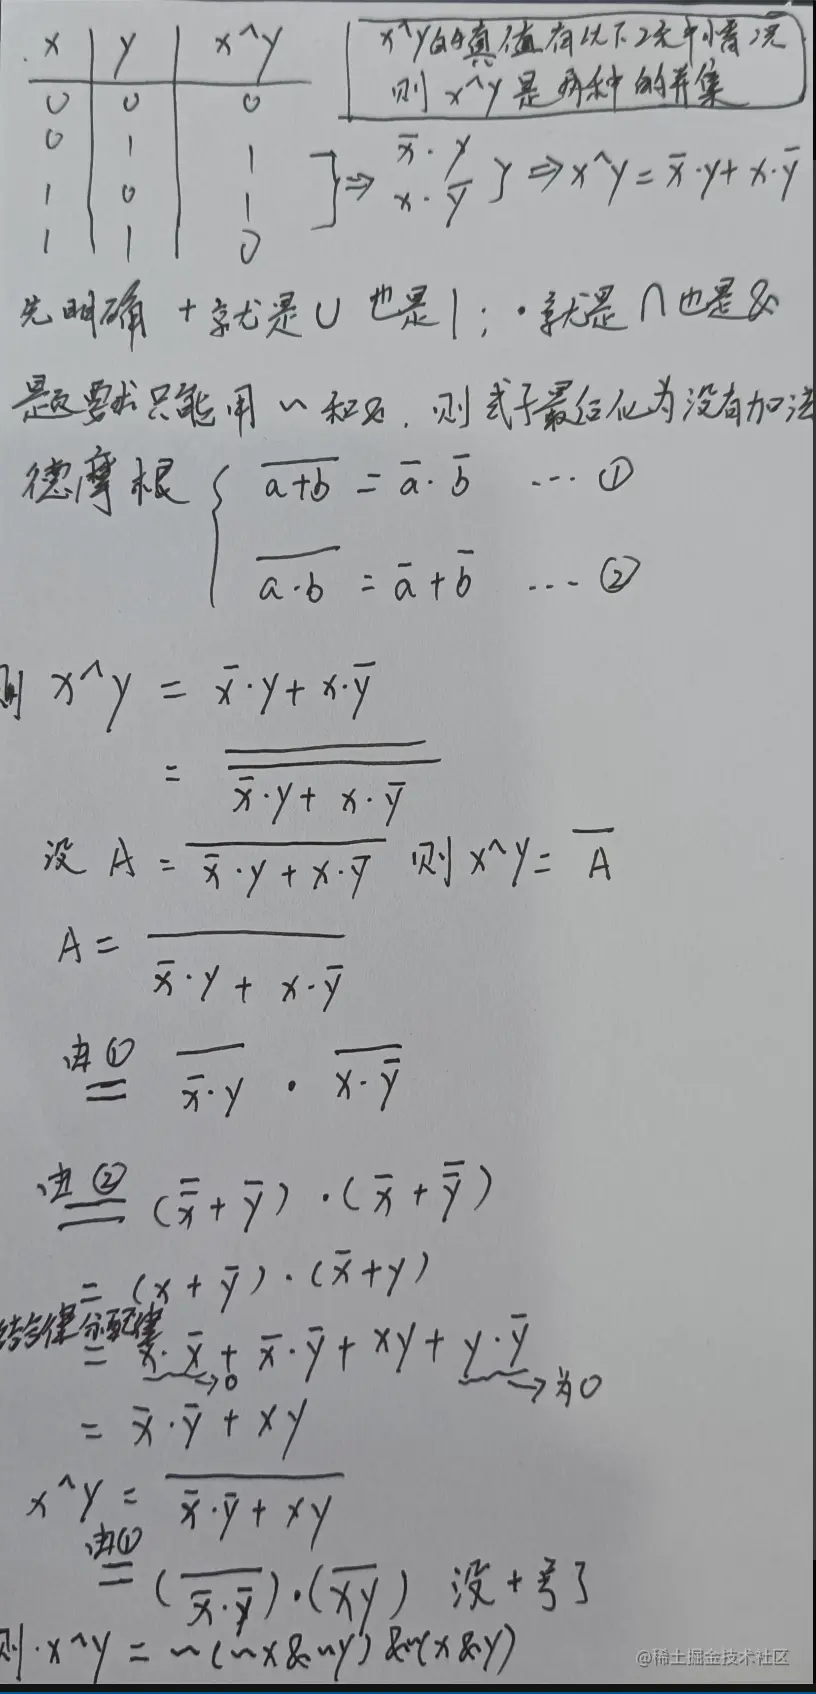 x y x^y
x^y的真值有以下2种情况
则 x^y 是两种的并集
0 0 0
0 1 1
1 0 1
1 1 0
⇒ x̅·y
x·y̅ } ⇒ x^y = x̅·y + x·y̅
先明确 + 就是∪ 也是|; ·就是∩也是&
题要求只能用 ~ 和&, 则式子最后化为没有加法
德摩根 { \overline{a+b} = a̅·b̅ ... ①
\overline{a·b} = a̅+b̅ ... ②
则 x^y = x̅·y + x·y̅
= \overline{\overline{x̅·y + x·y̅}}
设 A = \overline{x̅·y + x·y̅} 则 x^y = A̅
A = \overline{x̅·y + x·y̅}
由① = \overline{x̅·y} · \overline{x·y̅}
由② = (\overline{x̅} + y̅)·(x̅ + \overline{y̅})
= (x + y̅)·(x̅ + y)
结合律分配律
= x·x̅ + x̅·y̅ + xy + y·y̅
→0 →为0
= x̅·y̅ + xy
x^y = \overline{x̅·y̅ + xy}
由① = (\overline{x̅·y̅})·(\overline{xy}) 没+号了
则·x^y = ~(~x&~y)&~(x&y)
@稀土掘金技术社区